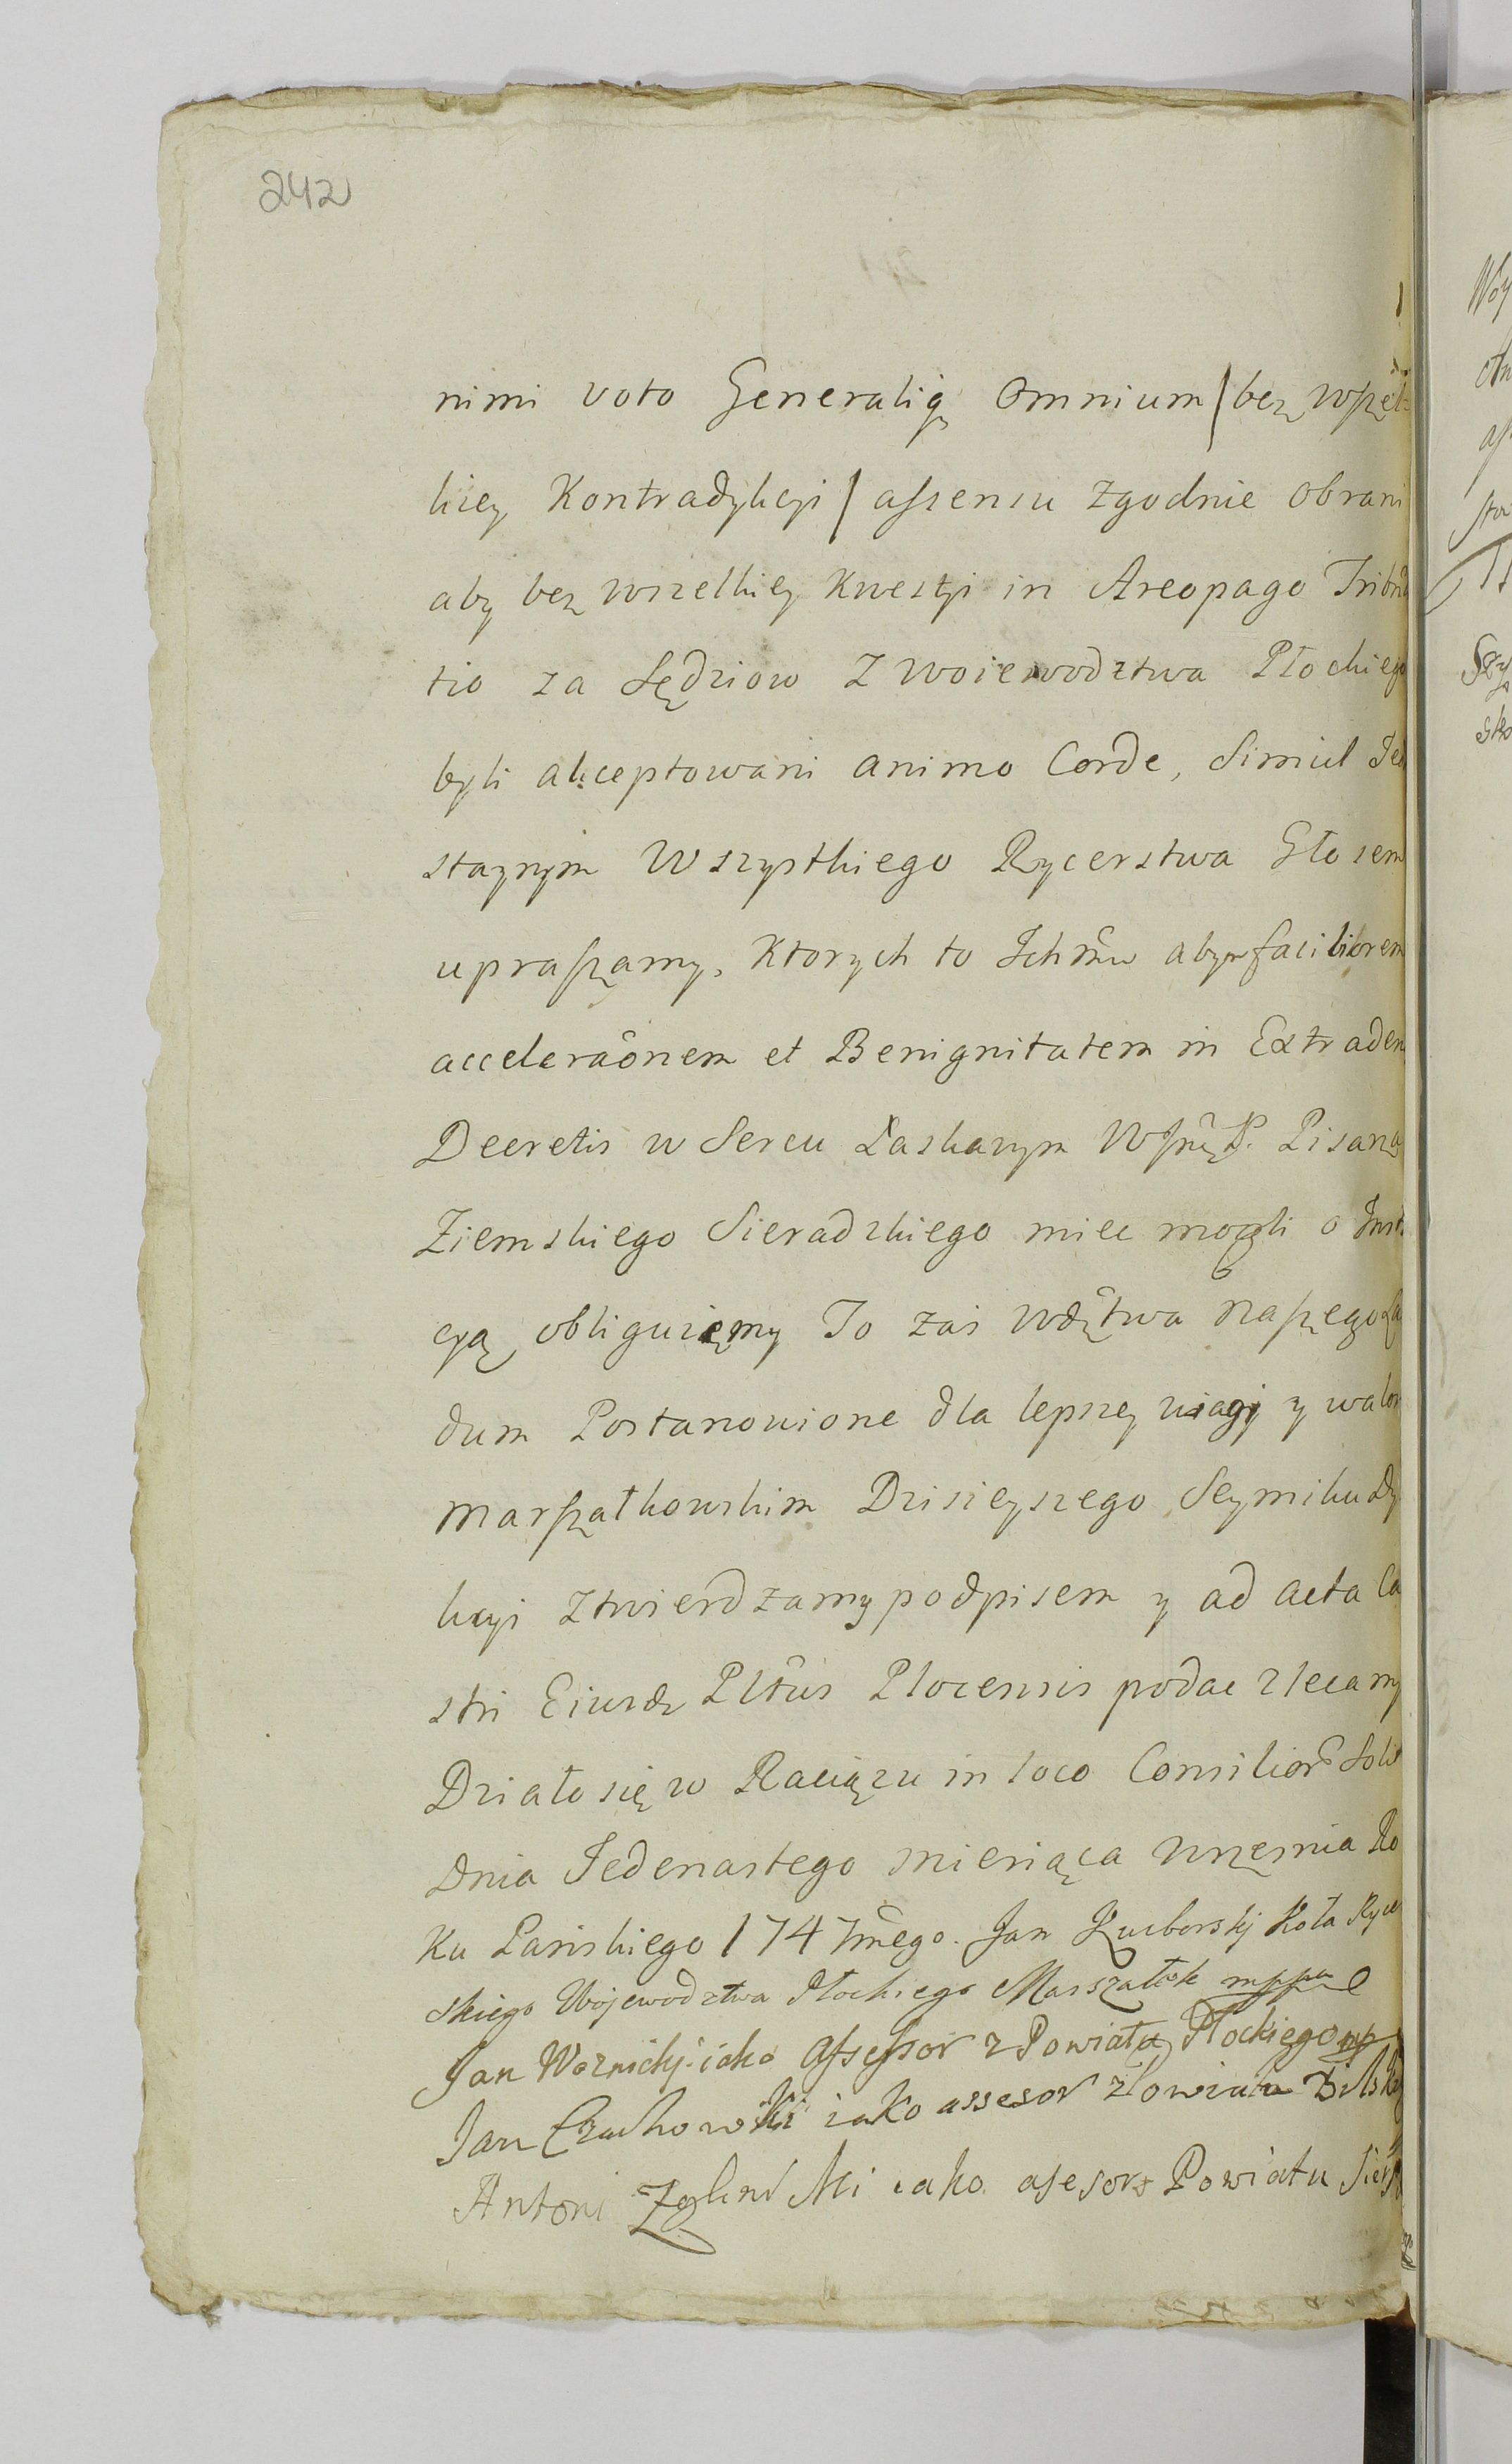 242
nimi voto Generaliq; omnium / bez wszel-
kiey Kontradykcyi / assensu zgodnie obrani
aby bez wszelkiey kwestyi in Areopago Tribu
tio za Sędziow z woiewodztwa Płockiego
byli akceptowani animo Corde, Simul Jed
staynym Wszystkiego Rycerstwa Głosem
upraszamy, Ktorych to Ichmw abym faciliorem
acceleraõnem et Benignitatem in Extraden
Decretis w Sercu Łaskawym WJmę P. Pisarza
Ziemskiego Sieradzkiego miec mogli o Inst
cyą obliguiemy To zas Wdztwa naszego La
dum Postanowione dla lepszey wagi y walor
Marszałkowskim Dzisieyszego Seymiku Dy
kcyi ztwierdzamy podpisem y ad acta Ca
stri Eiusd Pltus Plocensis podac zlecamy
Działo się w Raciązu in loco Consilior Soli
Dnia Jedenastego miesiąca Wrzesnia Ro
Ku Panskiego 1747mego. Jan Zuiborskj Koła Ryce
skiego Wojewodztwa Płockiego Marszałek mppa
Jan Woznicky iako Assessor z Powiatu Płockiego mp
Jan Czachowski iako assesor zPowiatu Bilskie
Antoni iako asesor z Powiatu Sierp